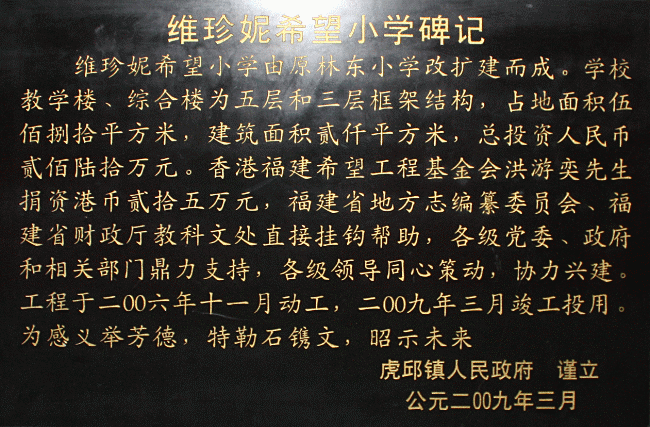 维珍妮希望小学碑记
维珍妮希望小学由原林东小学改扩建而成。学校
教学楼、综合楼为五层和三层框架结构，占地面积伍
佰捌拾平方米，建筑面积贰仟平方米，总投资人民币
贰佰陆拾万元。香港福建希望工程基金会洪游奕先生
捐资港币贰拾五万元，福建省地方志编纂委员会、福
建省财政厅教科文处直接挂钩帮助，各级党委、政府
和相关部门鼎力支持，各级领导同心策动，协力兴建。
工程于二00六年十一月动工，二00九年三月竣工投用。
为感义举芳德，特勒石镌文，昭示未来
虎邱镇人民政府 谨立
公元二00九年三月